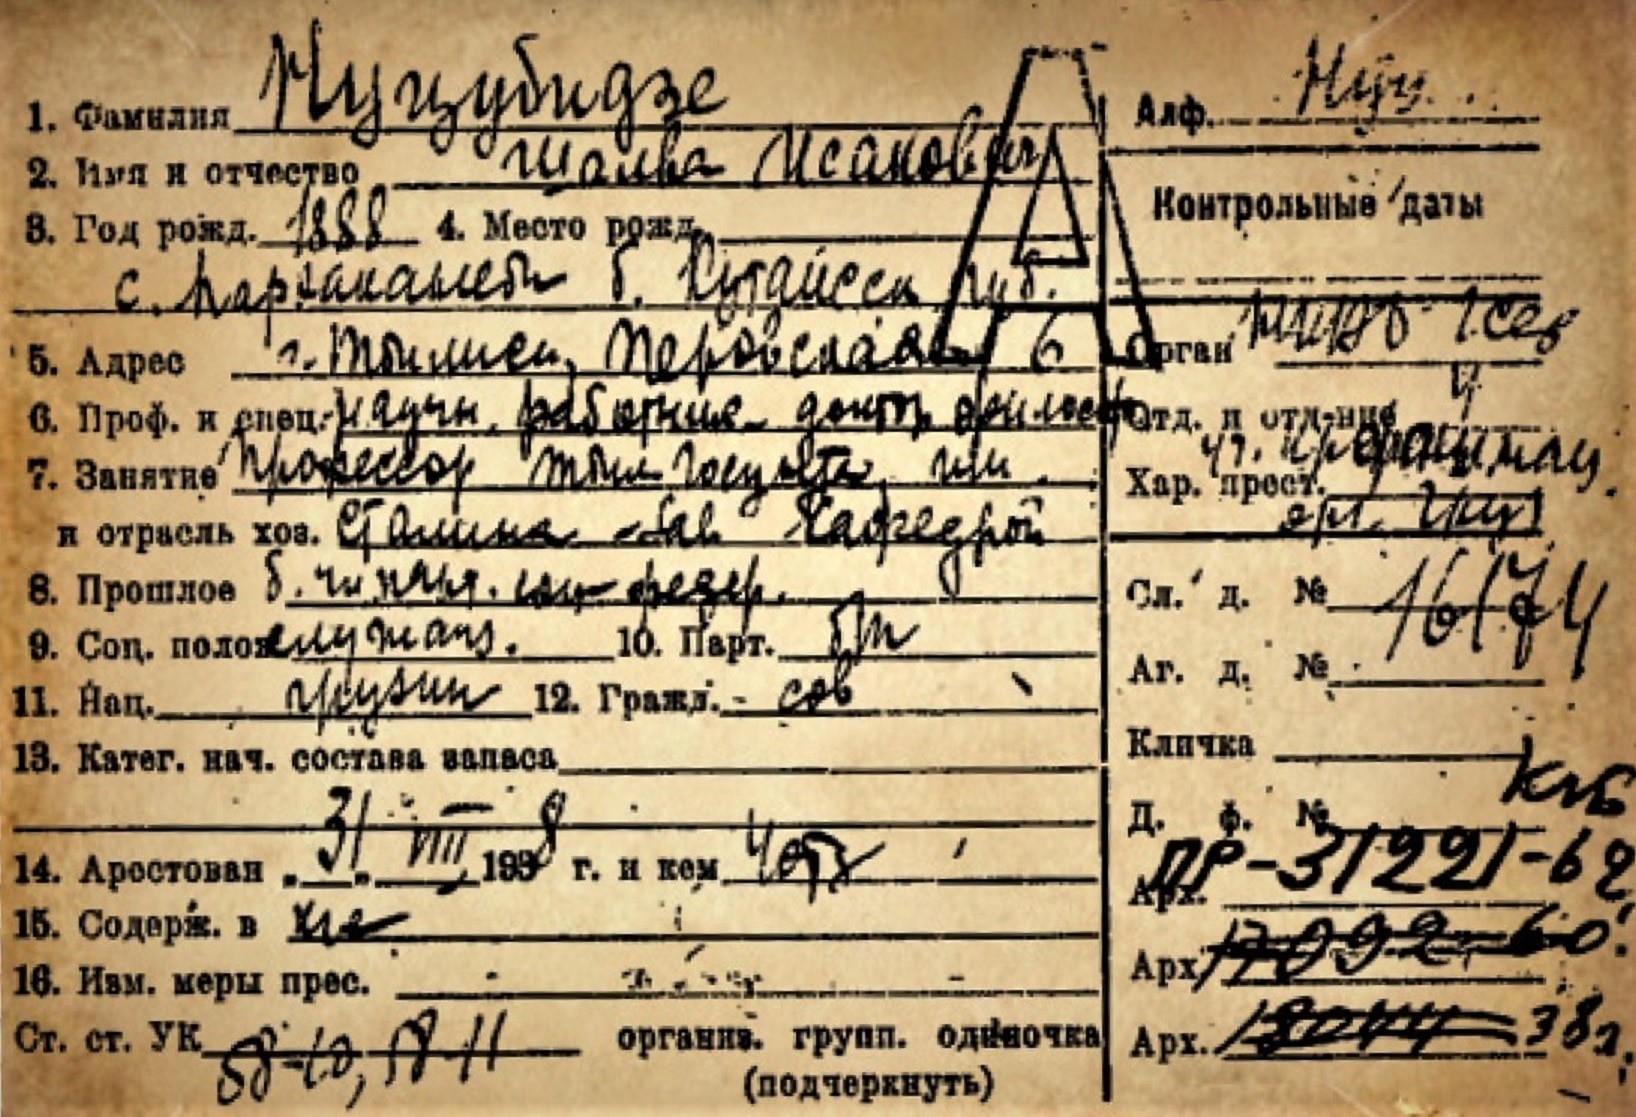 1. Фамилия Нуцубидзе
2. Имя и отчество Шалва Исакович
3. Год рожд. 1888 4. Место рожд.
с. б. Кутаисск губ.
5. Адрес г. Тбилиси, Перовская 6
6. Проф. и спец. научн. работник доктор философ
7. Занятие Профессор Тбил Госун-та, им.
и отрасль хоз. Сталина - Зав Кафедрой
8. Прошлое б. чл. парт. соц-федер.
9. Соц. полож служащ. 10. Парт. б/п
11. Нац. грузин 12. Гражд. - сов
13. Катег. нач. состава запаса
14. Арестован „31" VIII 1938 г. и кем 4 отд
15. Содерж. в
16. Изм. меры прес.
Ст. ст. УК 58-10, 58-11 организ. групп. одиночка
(подчеркнуть)
А
Алф. Нуц.
Контрольные даты
Орган
Отд. и отд-ние 4
Хар. прест.
Сл. д. № 16174
Аг. д. №
Кличка
Д. ф. № КГБ
Арх. ПР-31221-62
Арх 17092-60
Арх. 38г.